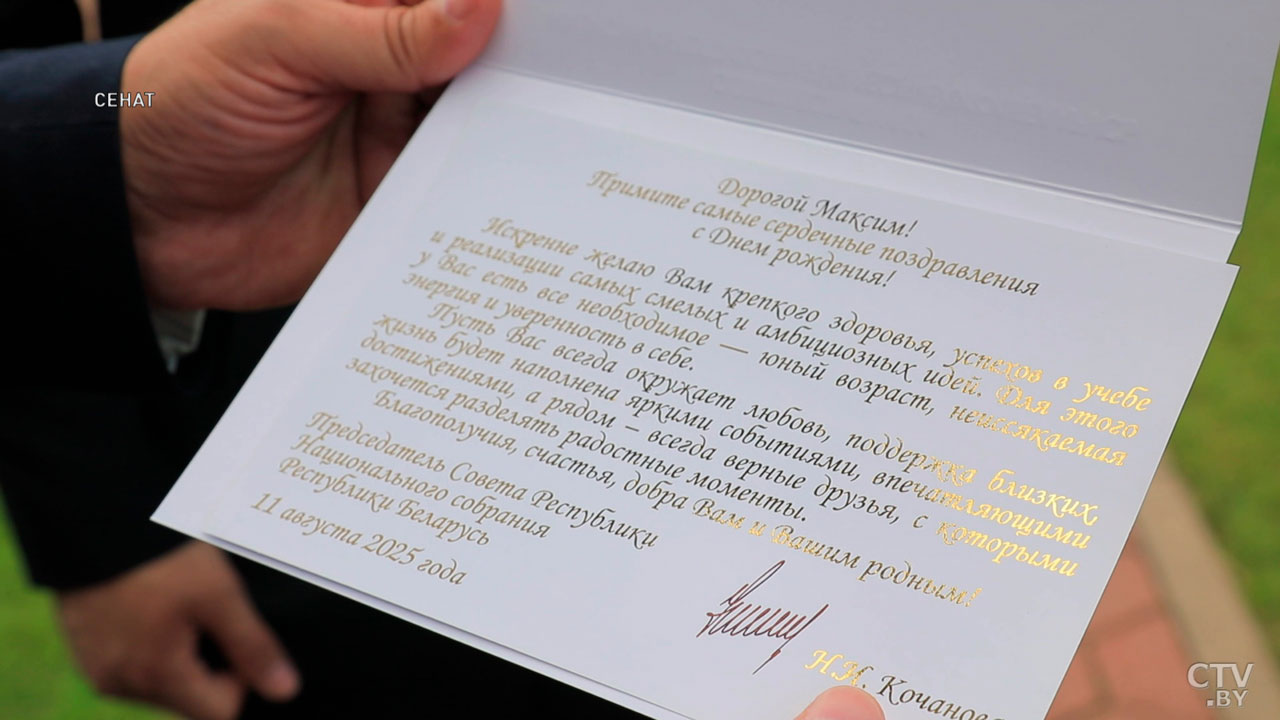 СЕНАТ
Дорогой Максим!
Примите самые сердечные поздравления
с Днем рождения!
Искренне желаю Вам крепкого здоровья, успехов в учебе
и реализации самых смелых и амбициозных идей. Для этого
у Вас есть все необходимое — юный возраст, неиссякаемая
энергия и уверенность в себе.
Пусть Вас всегда окружает любовь, поддержка близких,
жизнь будет наполнена яркими событиями, впечатляющими
достижениями, а рядом – всегда верные друзья, с которыми
захочется разделять радостные моменты.
Благополучия, счастья, добра Вам и Вашим родным!
Председатель Совета Республики
Национального собрания
Республики Беларусь
11 августа 2025 года
Н.И. Кочанова
CTV
.BY